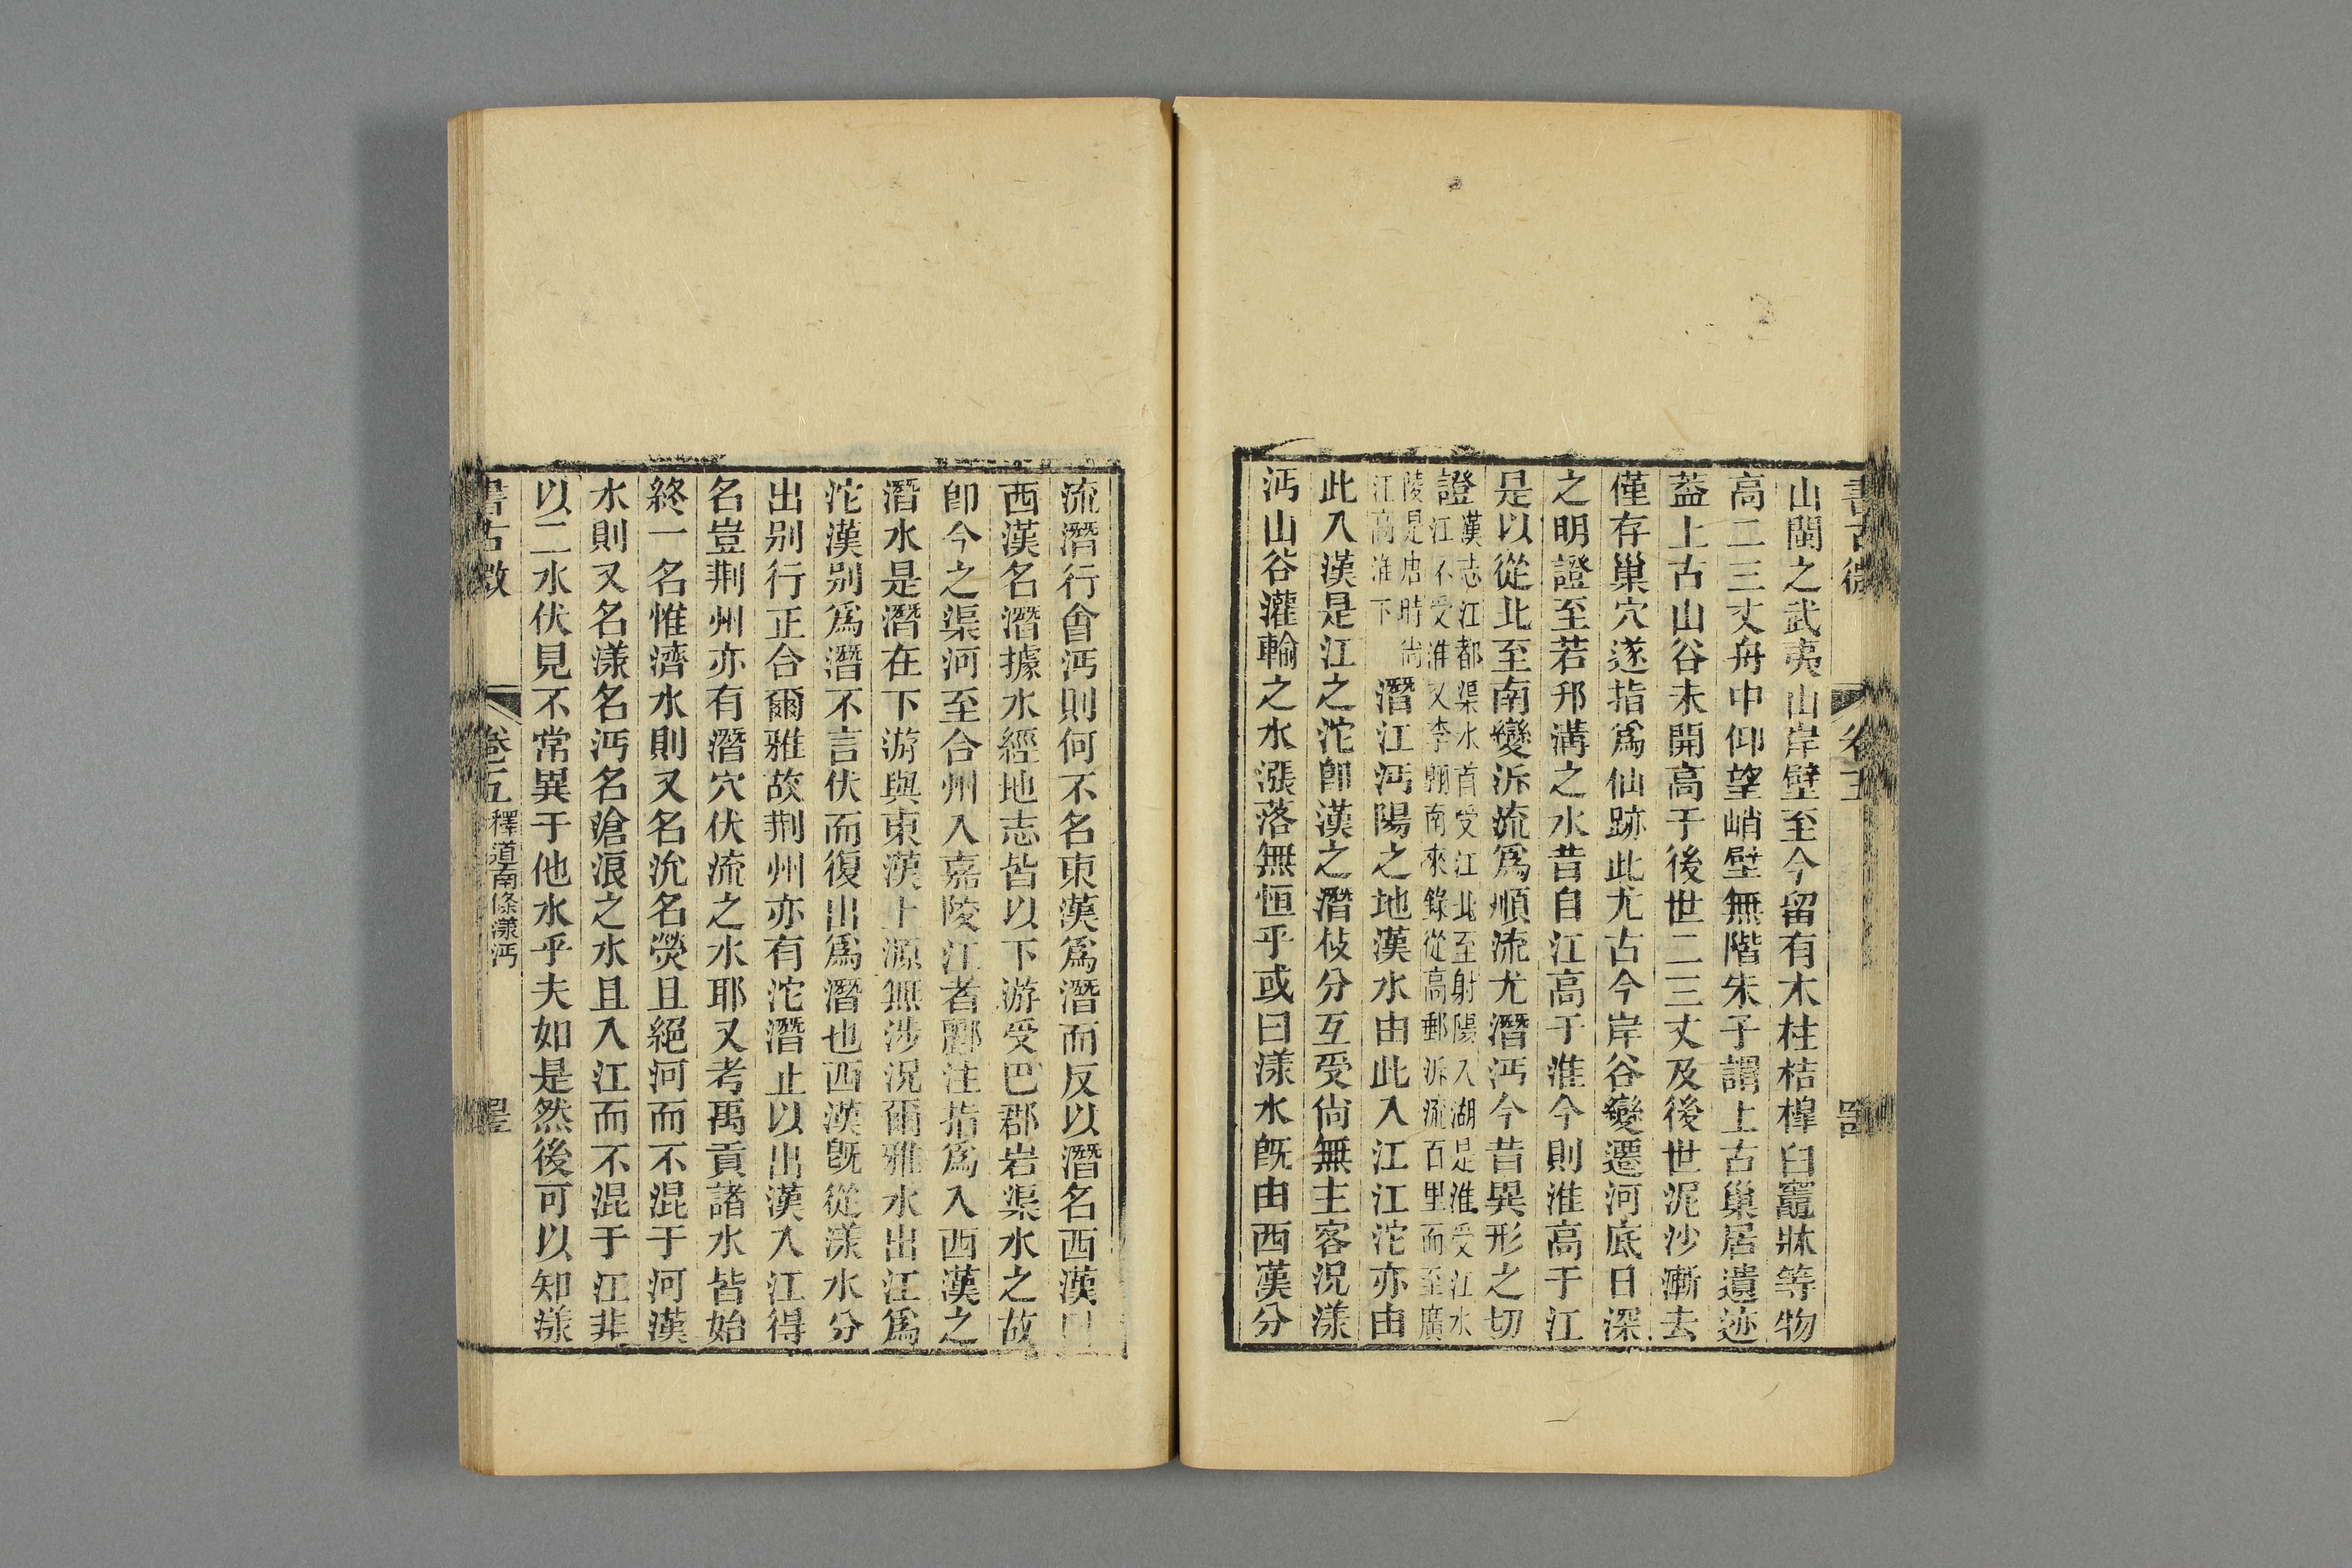 書古微 卷五
山閩之武夷山岸壁至今留有木柱桔槹臼竈牀等物
高二三丈舟中仰望峭壁無階朱子謂上古巢居遺迹
葢上古山谷未開高于後世二三丈及後世泥沙漸去
僅存巢穴遂指爲仙跡此尤古今岸谷變遷河底日深
之明證至若邗溝之水昔自江高于淮今則淮高于江
是以從北至南變泝流爲順流尤潛沔今昔異形之切
證漢志江都渠水首受江北至射陽入湖是淮受江水
江不受淮又李翺南來錄從高郵泝流百里而至廣
陵是唐時尙
江高淮下潛江沔陽之地漢水由此入江江沱亦由
此入漢是江之沱卽漢之潛枝分互受尙無主客况漾
沔山谷灌輸之水漲落無恒乎或曰漾水旣由西漢分
流潛行會沔則何不名東漢爲潛而反以潛名西漢
西漢名潛據水經地志皆以下游受巴郡岩渠水之故
卽今之渠河至合州入嘉陵江者酈注指爲入西漢之
潛水是潛在下游與東漢上源無涉况爾雅水出江爲
沱漢別爲潛不言伏而復出爲潛也西漢旣從漾水分
出別行正合爾雅故荆州亦有沱潛止以出漢入江得
名豈荆州亦有潛穴伏流之水耶又考禹貢諸水皆始
終一名惟濟水則又名沇名滎且絕河而不混于河漢
水則又名漾名沔名滄浪之水且入江而不混于江非
以二水伏見不常異于他水乎夫如是然後可以知漾
書古微 卷五 釋道南條漾沔